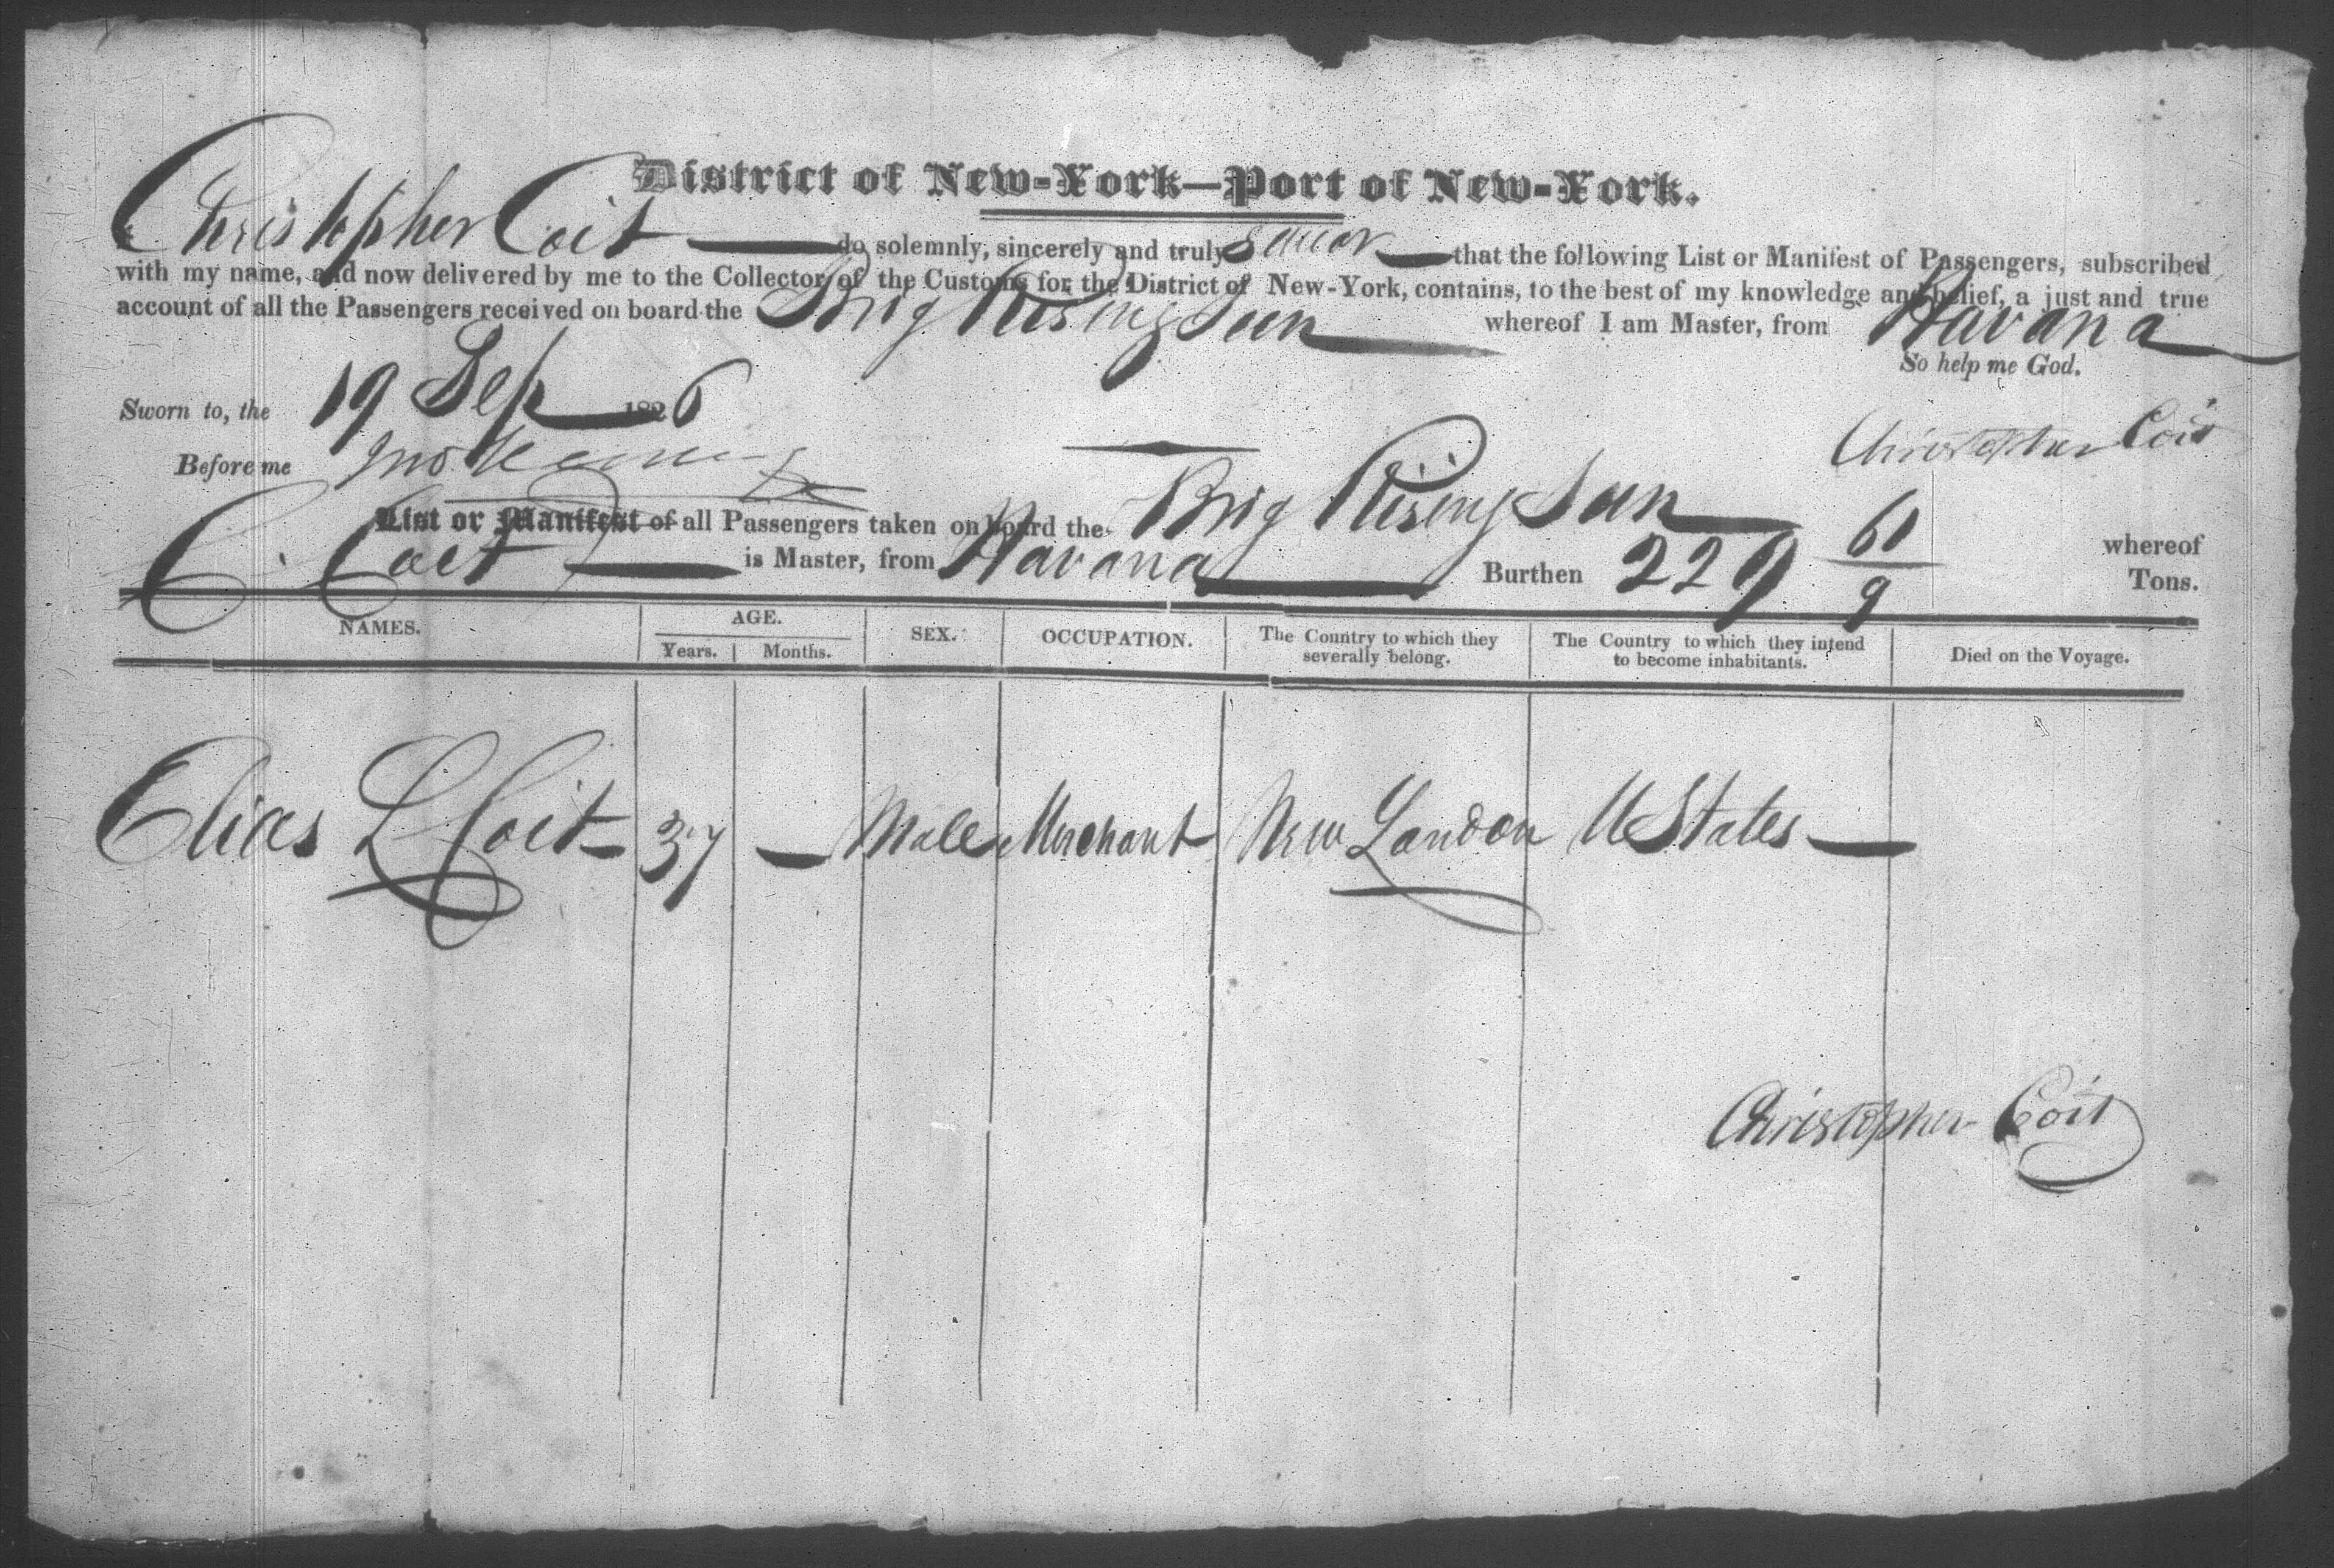 District of New-York—Port of New-York.
Christopher Coit — do solemnly, sincerely and truly swear — that the following List or Manifest of Passengers, subscribed
with my name, and now delivered by me to the Collector of the Customs for the District of New-York, contains, to the best of my knowledge and belief, a just and true
account of all the Passengers received on board the Brig Rising Sun whereof I am Master, from Havana
So help me God.
Sworn to, the 19 Sep 1826
Christopher Coit
Before me Jno
List or Manifest of all Passengers taken on board the Brig Rising Sun whereof
C. Coit — is Master, from Havana — Burthen 229 60/9 Tons.
NAMES. AGE. Years. Months. SEX. OCCUPATION. The Country to which they severally belong. The Country to which they intend to become inhabitants. Died on the Voyage.
Elias L Coit 37 — Male Merchant New London U States —
Christopher Coit